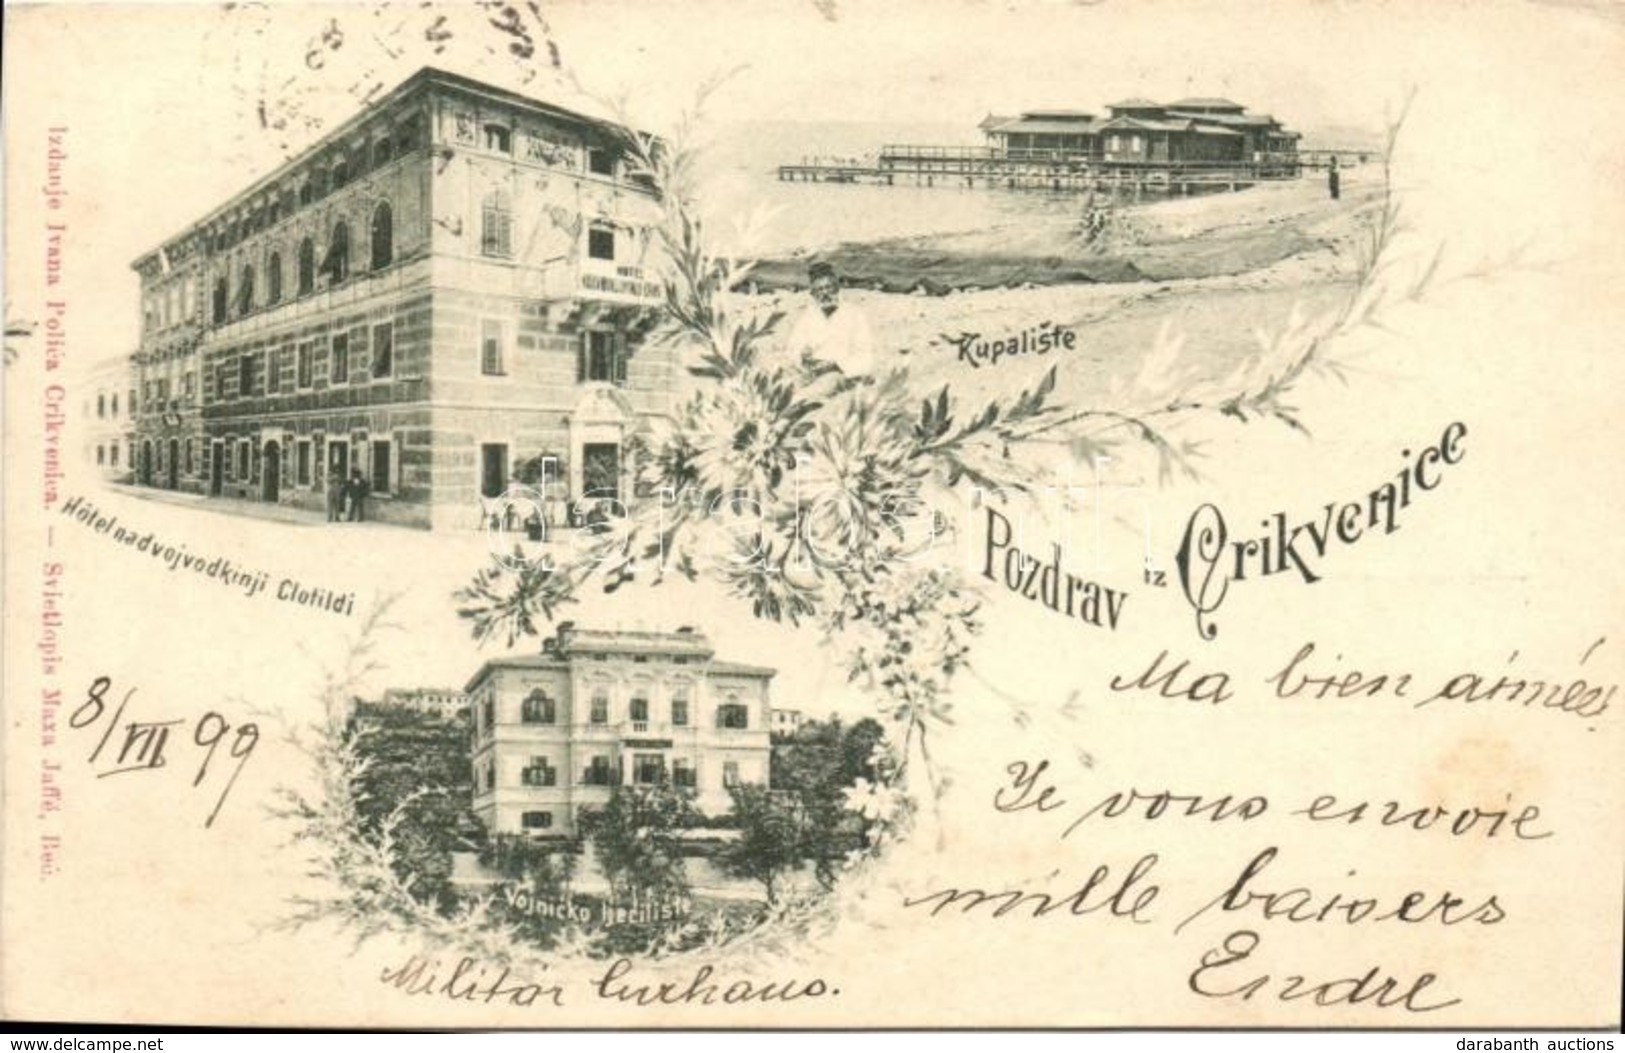 Izdanje Ivana Polića Crikvenica. — Svjetlopis Maxa Jaffé, Beč.
HOTEL
Kupalište
Hôtel nadvojvodkinji Clotildi
Pozdrav iz Crikvenice
8/VII 99
Ma bien aimée
Je vous envoie
mille baisers
Endre
Vojničko lječilište
Militär Curhaus.
darabanth
delcampe.net
darabanth auctions